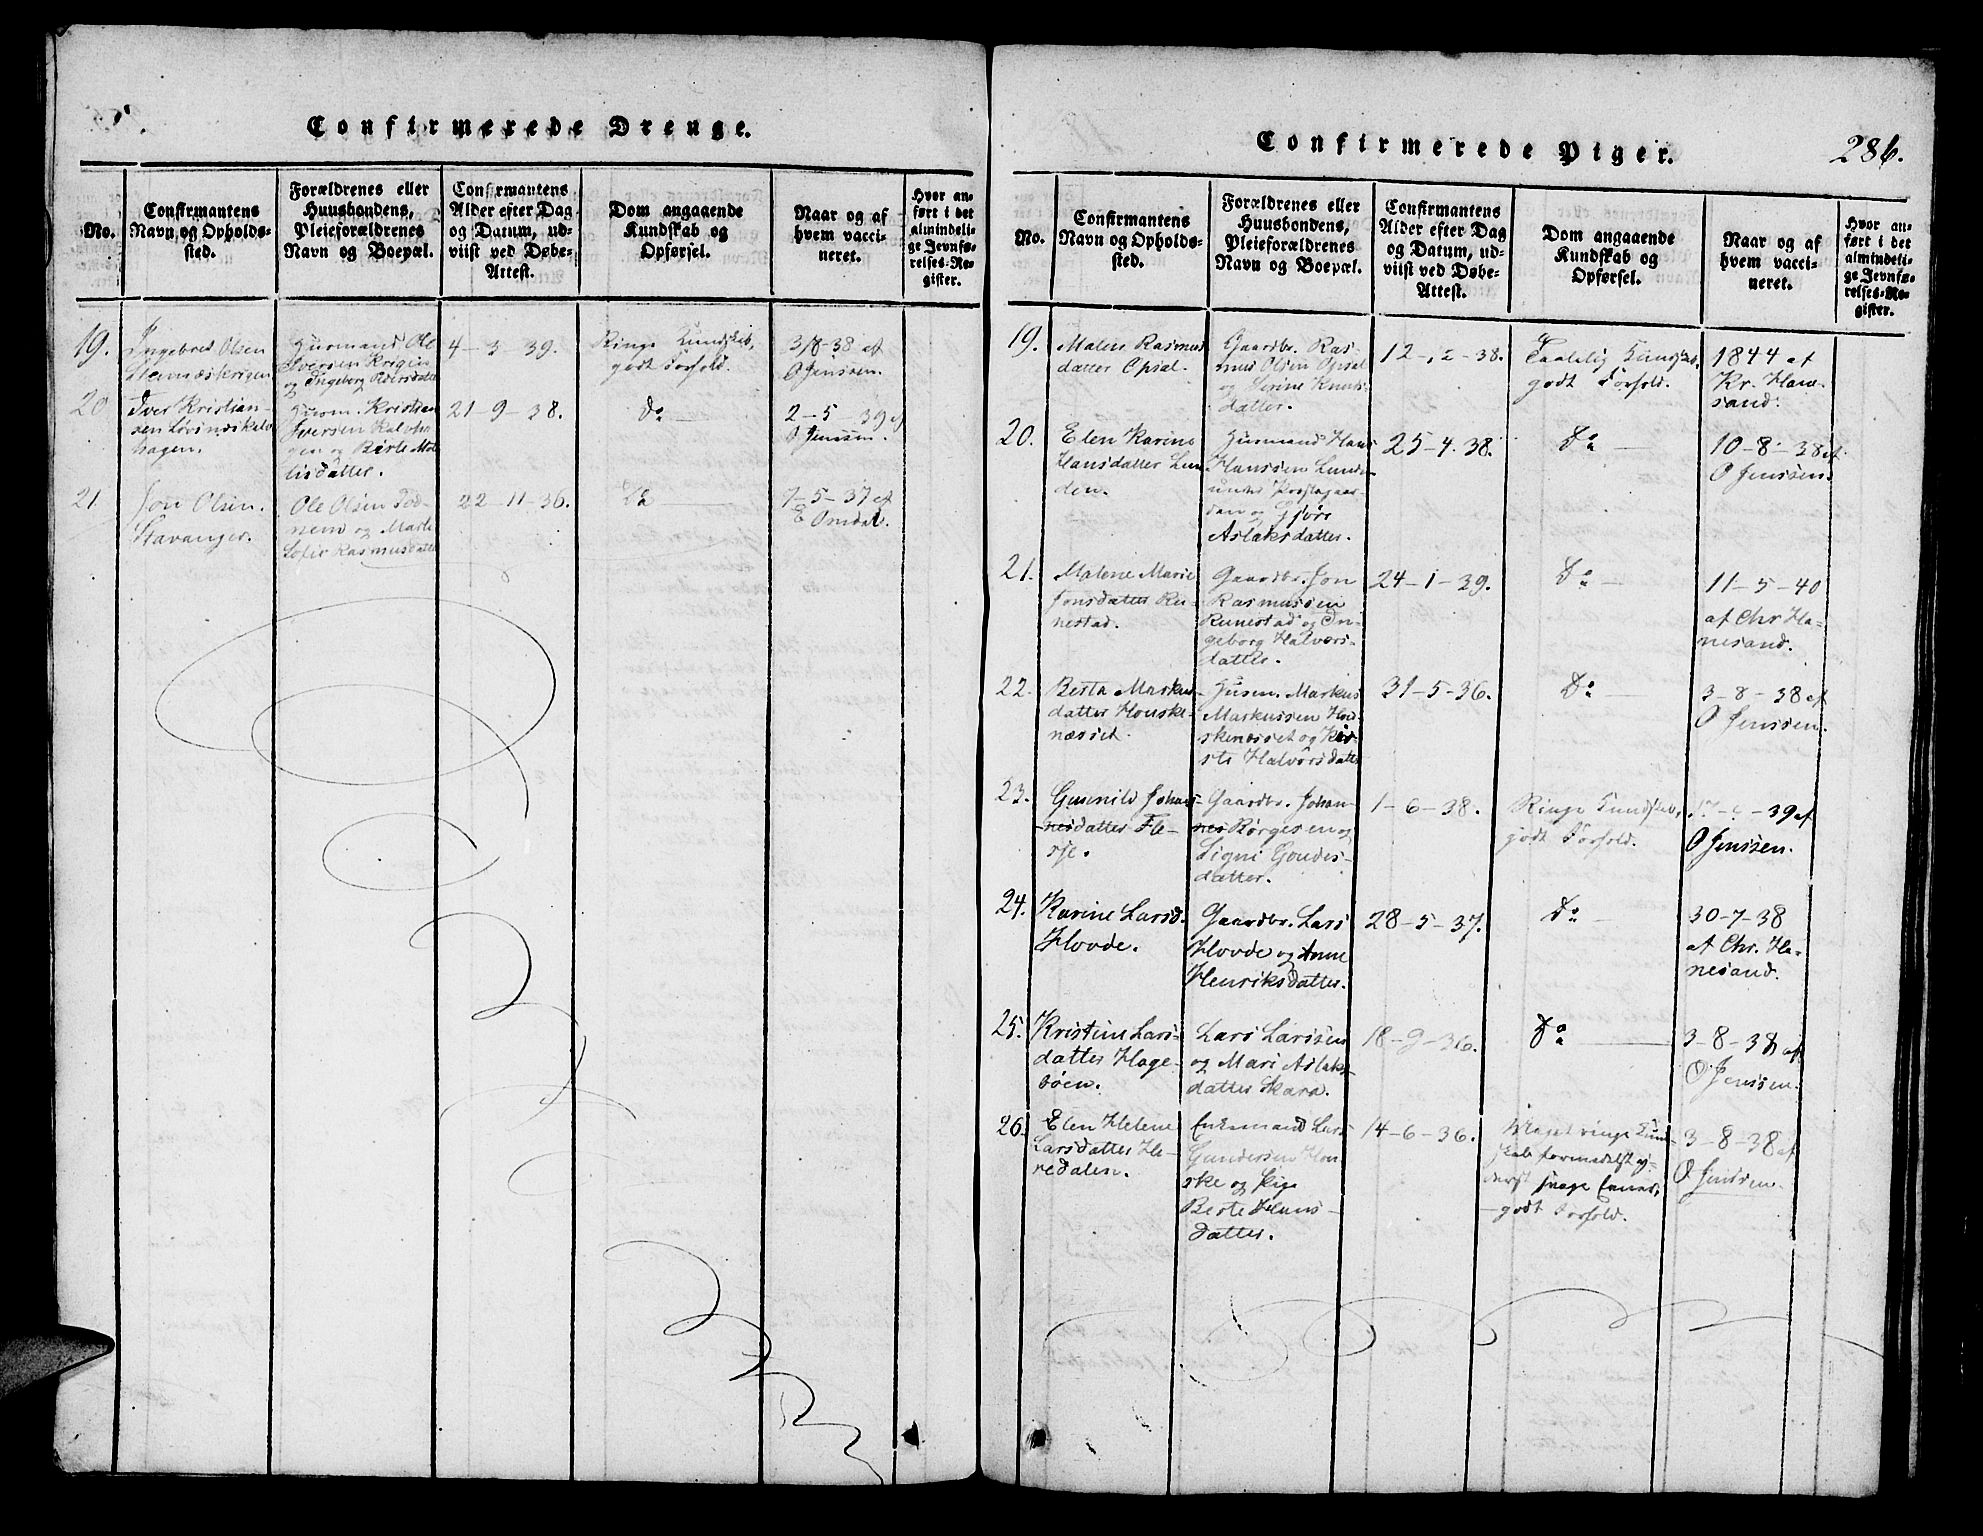 Confirmerede Drenge.
No.
Confirmantens
Navn og Opholds-
sted.
Forældrenes eller
Huusbondens,
Pleieforældrenes
Navn og Boepæl.
Confirmantens
Alder efter Dag
og Datum, ud-
viist ved Døbe-
Attest.
Dom angaaende
Kundskab og
Opførsel.
Naar og af
hvem vacci-
neret.
Hvor an-
ført i det
almindeli-
ge Jevnfø-
relses-Re-
gister.
19.
Ingebret Olsen
Stemnæskrigen
Huusmand Ole
Iversen Krigen
og Ingeborg
4-3-39.
Ringe Kundskab,
godt Forhold.
3/8-38 af
O Jenssen.
20
Iver Kristian-
sen
hagen.
Huusm. Kristian
Iversen Kalvha
gen og Berte Mat
tisdatter.
21-9-38.
Do
2-5 39 af
O Jenssen.
21.
Jon Olsen.
Stavanger.
Ole Olsen Tod-
nem og Marte
Sofie Rasmusdatter
22-11-36.
Do
7-5-37 af
E Omdal.
Confirmerede Piger.
286.
No.
Confirmantens
Navn og Opholds-
sted.
Forældrenes eller
Huusbondens,
Pleieforældrenes
Navn og Boepæl.
Confirmantens
Alder efter Dag
og Datum, ud-
viist ved Døbe-
Attest.
Dom angaaende
Kundskab og
Opførsel.
Naar og af
hvem vacci-
neret.
Hvor an-
ført i det
almindeli-
ge Jevnfø-
relses-Re-
gister.
19.
Malene Rasmus
datter Opsal.
Gaardbr. Ras-
mus Olsen Opsal
og Serine Knuds-
datter.
12-12-38.
Taalelig Kundskab,
godt Forhold.
1844 af
Kr. Hane
sand.
20.
Elen Karine
Hansdatter Lun
den.
Huusmand Hans
Hanssen Lunden
under Præstegaar-
den og Gjøre
Aslaksdatter.
25-4-38.
Do
10-8-38 af
O Jenssen.
21.
Malene Marie
Jonsdatter Ru-
nestad.
Gaardbr. Jon
Rasmussen
Runestad og In-
geborg Halvors-
datter.
24-1-39.
Do
11-5-40
af Chr Ha-
nesand.
22.
Berta Markus-
datter Houske-
næsset.
Huusm. Markus
Markussen Hou-
skenæsset og Kir-
sti Halvorsdatter
31-5-36.
Do
3-8-38 af
O Jenssen.
23.
Gunnild Johan-
nesdatter Fle-
sje.
Gaardbr. Johan-
nes Børgesen og
Signi Goudes-
datter.
1-6-38.
Ringe Kundskab,
godt Forhold.
39 af
O Jenssen.
24.
Karine Larsd.
Hovde.
Gaardbr. Lars
Hovde og Anne
Henriksdatter.
28-5-37.
Do
30-7-38
af Chr. Ha-
nesand.
25.
Kristine Lars-
datter Hage-
bøen.
Lars Larssen
og Mari Aslaks-
datter Skara.
18-9-36.
Do
3-8-38 af
O Jenssen.
26.
Elen Helene
Larsdatter He-
redalen.
Enkemand Lars
Gundersen Hou-
ske og Pige
Berte Hans-
datter.
14-6-36.
Meget ringe Kund-
skab formedelst y-
derst svage Evner,
godt Forhold.
3-8-38 af
O Jenssen.